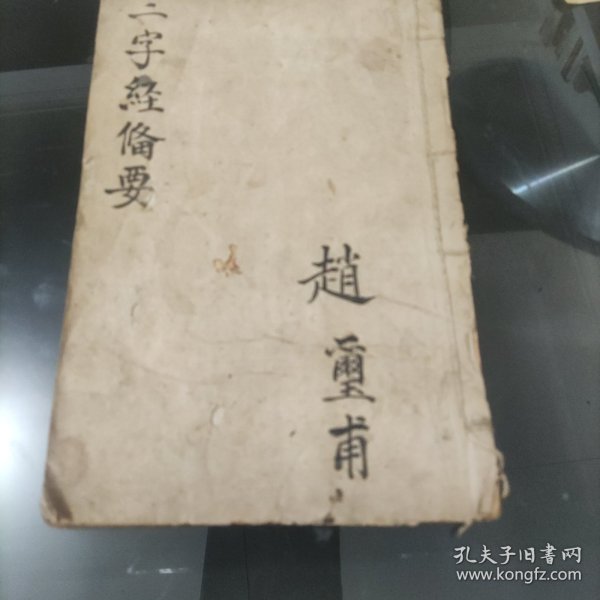 三字経俻要
趙璽甫
孔夫子旧書网
www.kongfz.com